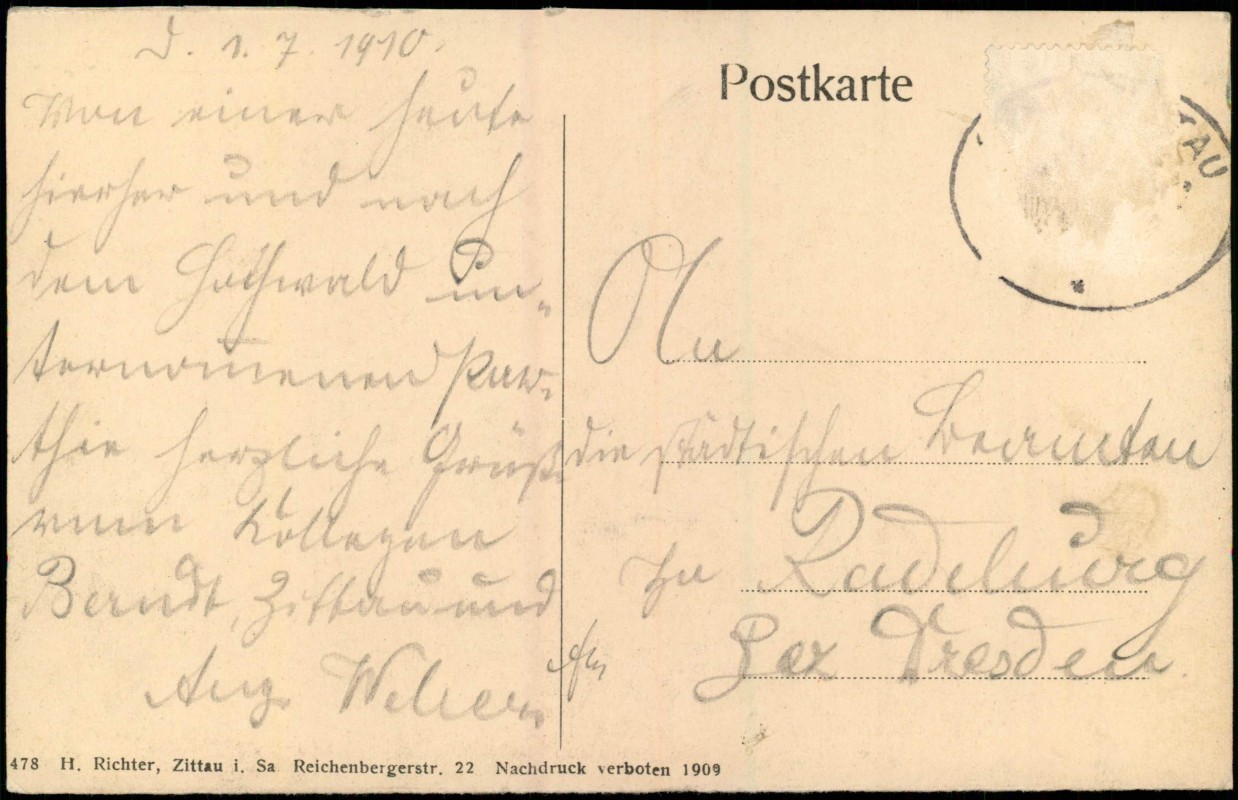 D. 1. 7. 1910.
Von einer heute
hierher und nach
dem Hochwald un-
ternom̄enen Par-
thie herzliche Grüße
vom Kollegen
Berndt, Zittau und
Aug.
Postkarte
TAU
An
die städtischen Beamten
in Radeburg
Bez Dresden
478 H. Richter, Zittau i. Sa Reichenbergerstr. 22 Nachdruck verboten 1909